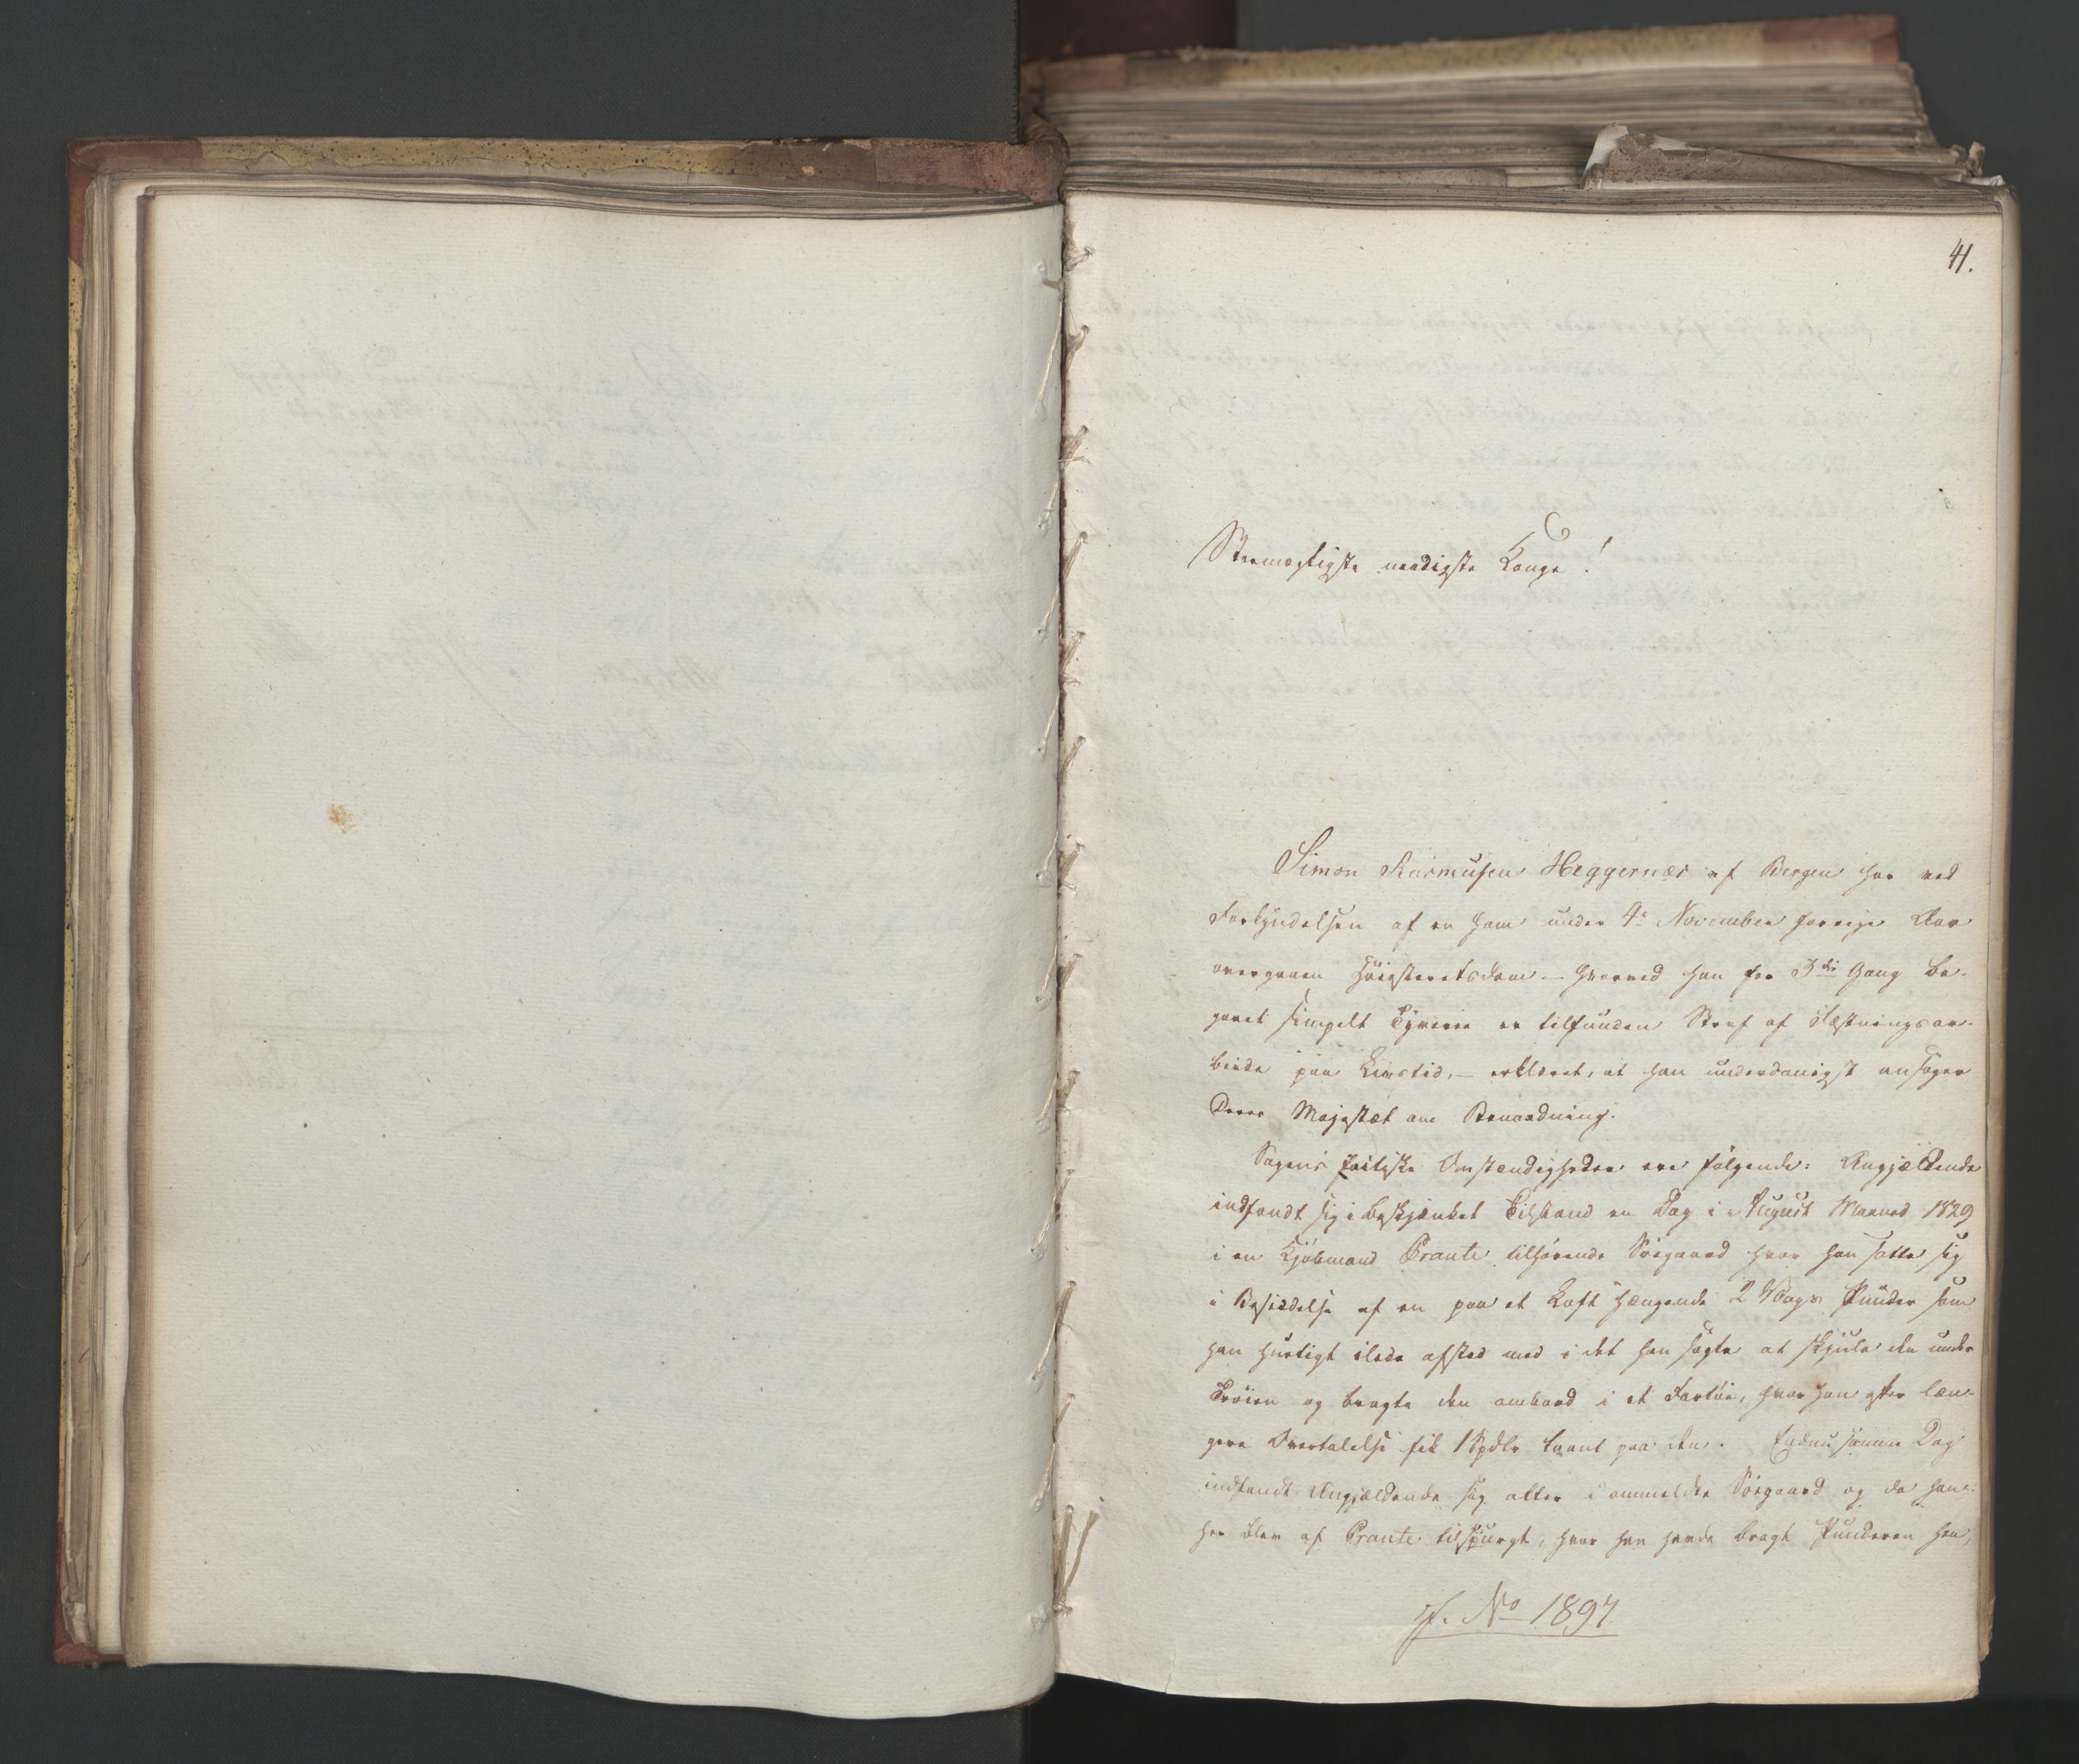 41.
Stormægtigste naadigste Konge!
Simon Rasmusen Heggernæs af Bergen har ved
Forkyndelsen af en ham under 4de November forrige Aar
overgaaen Høiesteretsdom – hvorved han for 3die Gang be-
gaaet simpelt Tyverie er tilfunden Straf af Fæstningsar-
beide paa Livstid, – erklæret, at han underdanigst ansøger
Deres Majestæt om Benaadning.
Sagens factiske Omstændigheder ere følgende: Angjældende
indfandt sig i beskjænket Tilstand en Dag i August Maaned 1829
i en Kjøbmand Prante tilhørende Søegaard hvor han satte sig
i Besiddelse af en paa et Loft hængende 2 Vogs Punder som
han hurtigt ilede afsted med i det han søgte at skjule den under
Trøien og bragte den ombord i et Fartøi, hvor han efter læn-
gere Overtalelse fik 1 Spdlr laant paa den. Endnu samme Dag
indfandt Angjældende sig atter i ommeldte Søegaard og da han
her blev af Prante tilspurgt, hvor han havde bragt Punderen hen,
f. No 1897